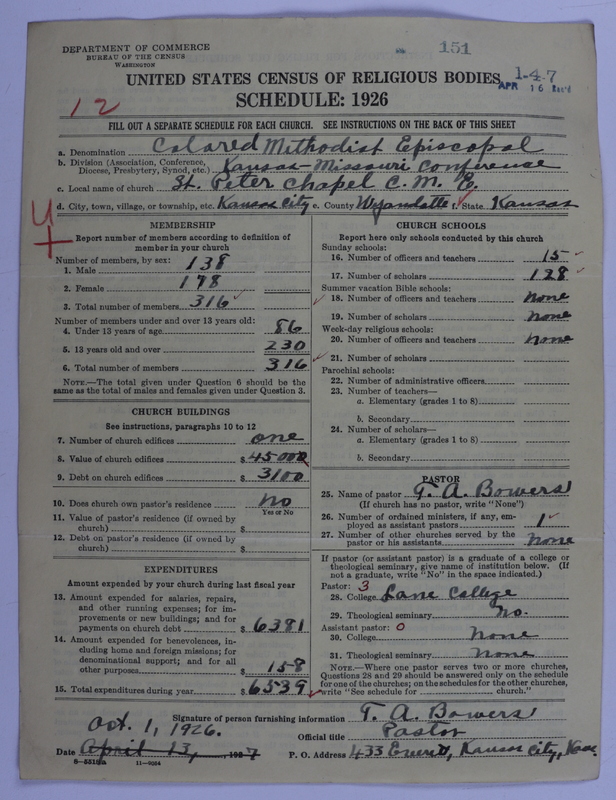 DEPARTMENT OF COMMERCE
BUREAU OF THE CENSUS
WASHINGTON
151
1-4-7
APR 16 Rec'd
UNITED STATES CENSUS OF RELIGIOUS BODIES
12
SCHEDULE: 1926
FILL OUT A SEPARATE SCHEDULE FOR EACH CHURCH. SEE INSTRUCTIONS ON THE BACK OF THIS SHEET
a. Denomination Colored Methodist Episcopal
b. Division (Association, Conference, Diocese, Presbytery, Synod, etc.) Kansas-Missouri Conference
c. Local name of church St. Peter Chapel C. M. E.
d. City, town, village, or township, etc. Kansas City e. County Wyandotte f. State Kansas
MEMBERSHIP
Report number of members according to definition of
member in your church
Number of members, by sex:
1. Male 138
2. Female 178
3. Total number of members 316
Number of members under and over 13 years old:
4. Under 13 years of age 86
5. 13 years old and over 230
6. Total number of members 316
NOTE.—The total given under Question 6 should be the
same as the total of males and females given under Question 3.
CHURCH BUILDINGS
See instructions, paragraphs 10 to 12
7. Number of church edifices one
8. Value of church edifices $ 45000
9. Debt on church edifices $ 3100
10. Does church own pastor's residence No
Yes or No
11. Value of pastor's residence (if owned by
church) $
12. Debt on pastor's residence (if owned by
church) $
EXPENDITURES
Amount expended by your church during last fiscal year
13. Amount expended for salaries, repairs,
and other running expenses; for im-
provements or new buildings; and for
payments on church debt $ 6381
14. Amount expended for benevolences, in-
cluding home and foreign missions; for
denominational support; and for all
other purposes $ 158
15. Total expenditures during year $ 6539
CHURCH SCHOOLS
Report here only schools conducted by this church
Sunday schools:
16. Number of officers and teachers 15
17. Number of scholars 128
Summer vacation Bible schools:
18. Number of officers and teachers None
19. Number of scholars None
Week-day religious schools:
20. Number of officers and teachers None
21. Number of scholars
Parochial schools:
22. Number of administrative officers
23. Number of teachers—
a. Elementary (grades 1 to 8)
b. Secondary
24. Number of scholars—
a. Elementary (grades 1 to 8)
b. Secondary
PASTOR
25. Name of pastor T. A. Bowers
(If church has no pastor, write "None")
26. Number of ordained ministers, if any, em-
ployed as assistant pastors 1
27. Number of other churches served by the
pastor or his assistants None
If pastor (or assistant pastor) is a graduate of a college or
theological seminary, give name of institution below. (If
not a graduate, write "No" in the space indicated.)
Pastor: 3
28. College Lane College
29. Theological seminary No.
Assistant pastor: 0
30. College None
31. Theological seminary None
NOTE.—Where one pastor serves two or more churches,
Questions 28 and 29 should be answered only on the schedule
for one of the churches; on the schedules for the other churches,
write "See schedule for church."
Signature of person furnishing information T. A. Bowers
Oct. 1, 1926.
Official title Pastor
Date April 13, 1927
P. O. Address 433 Everett, Kansas City, Kan.
8-5518a 11-9024